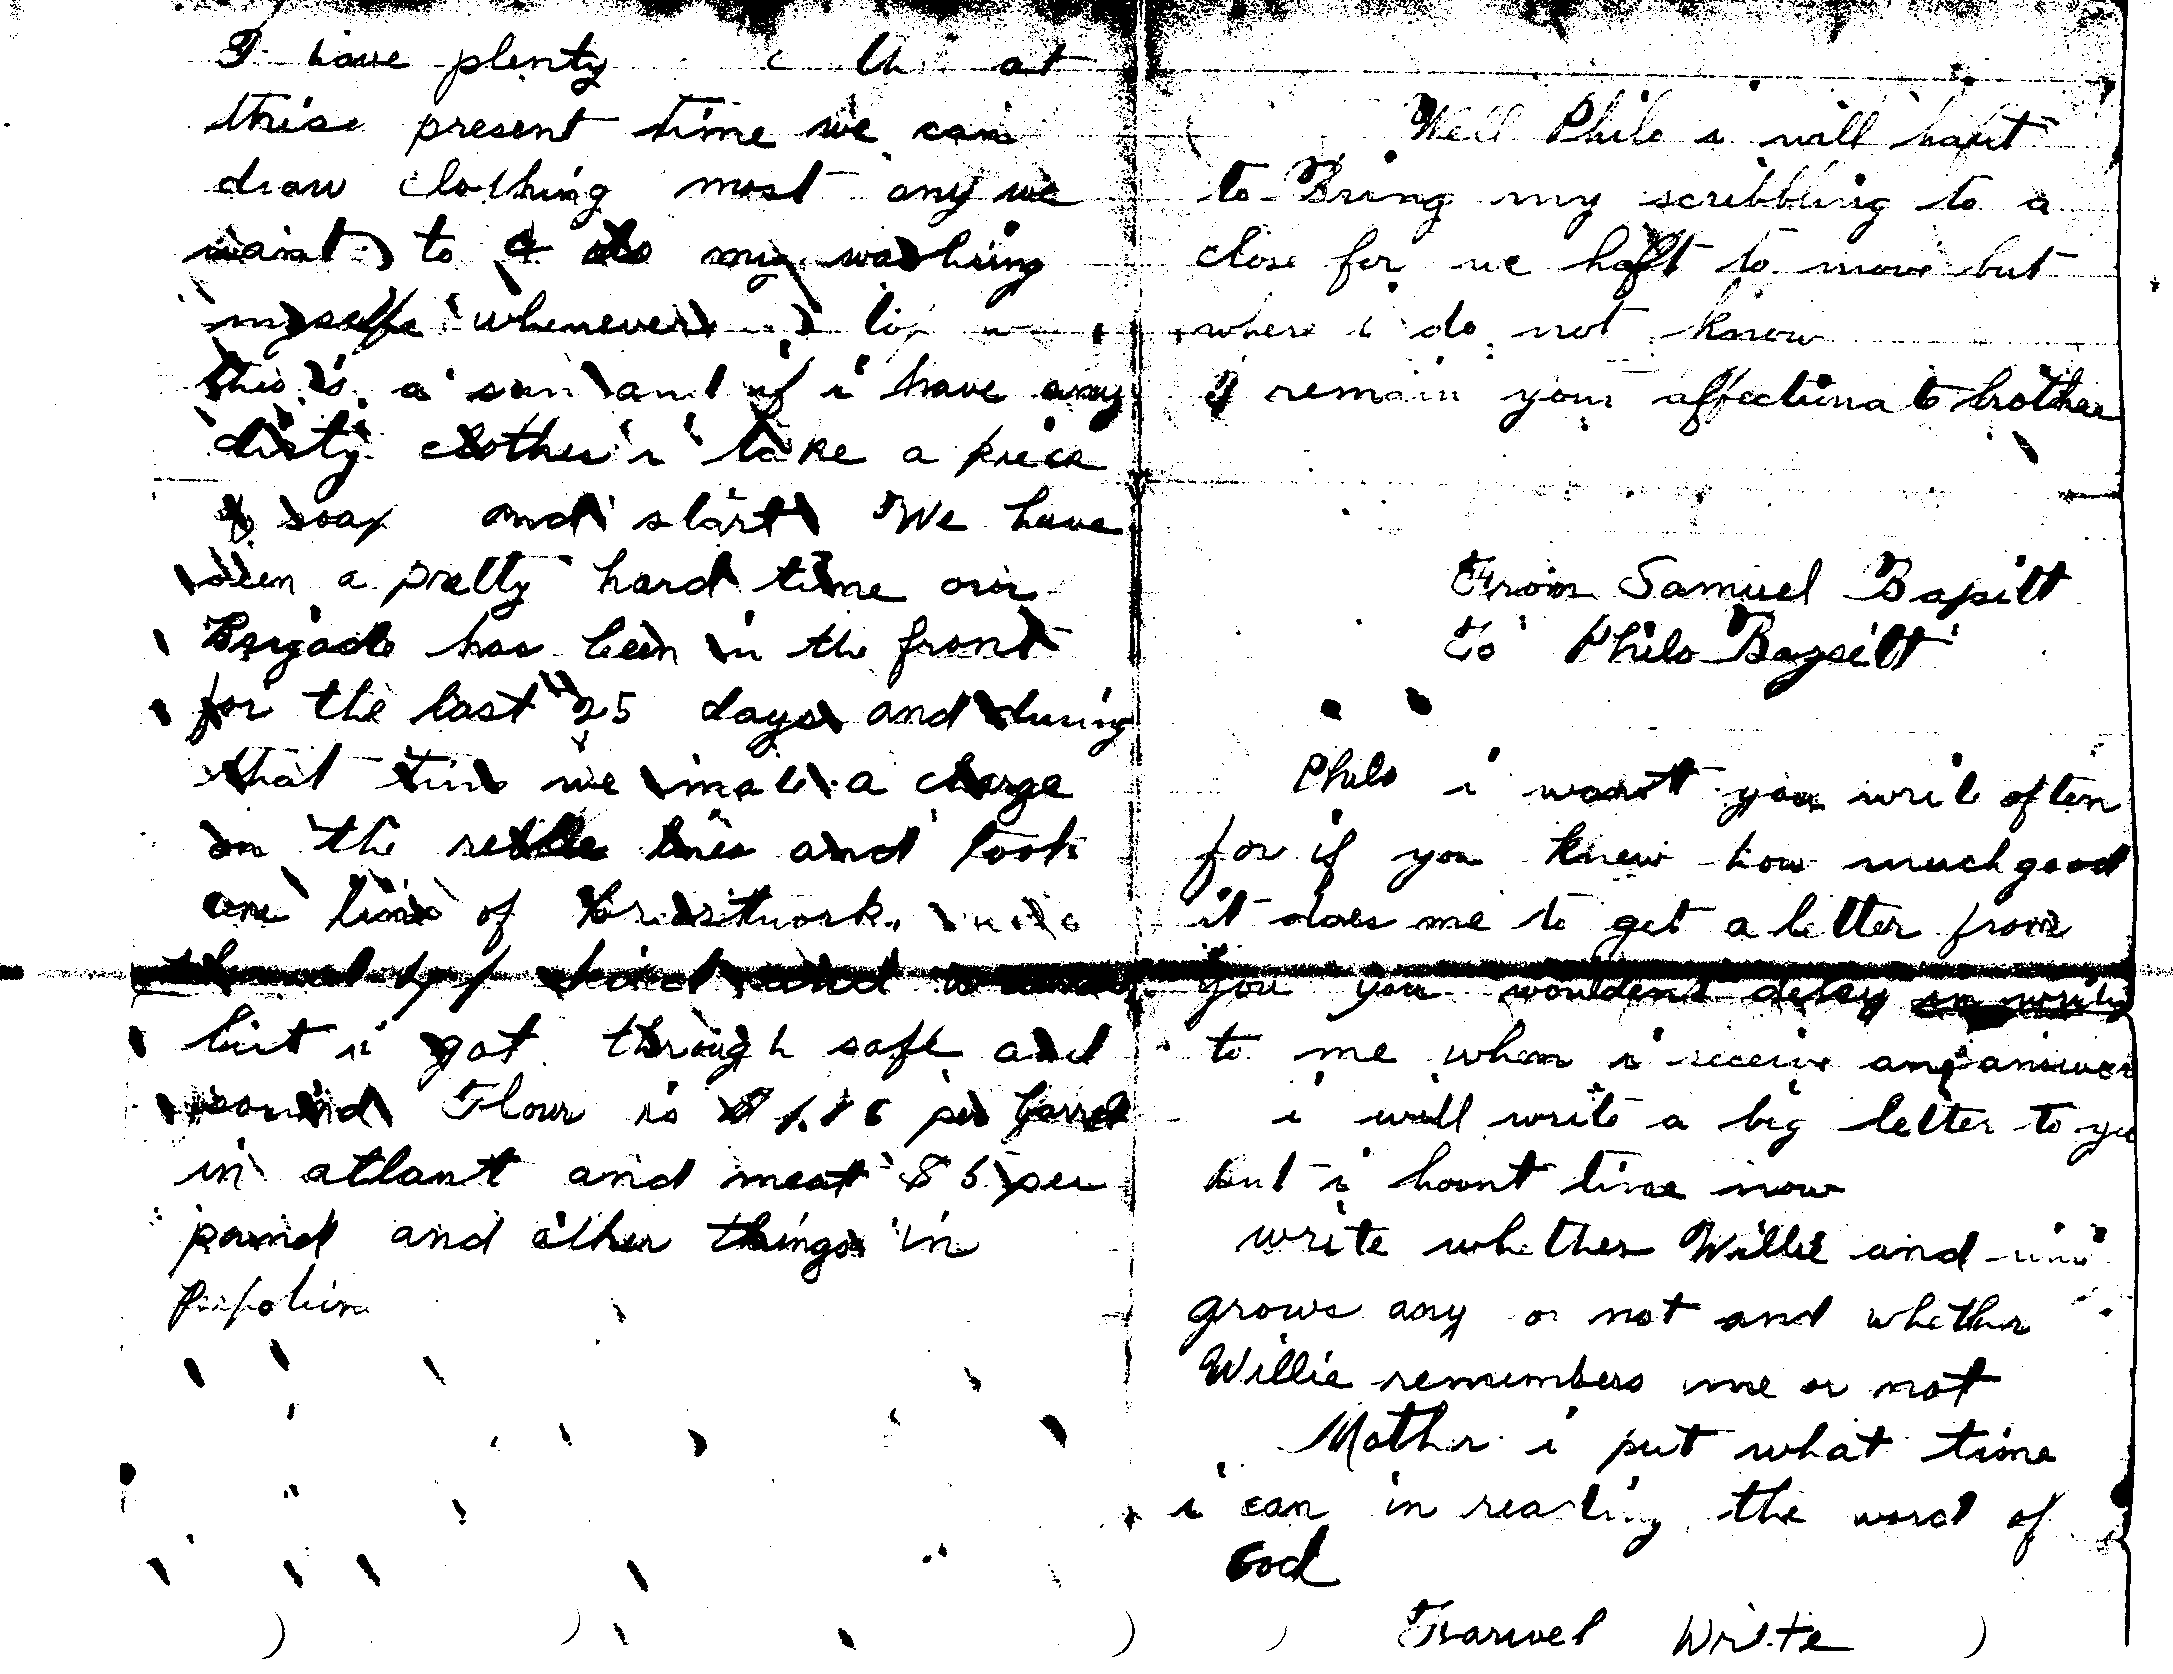 I have plenty at
this present time we can
draw clothing most any we
want to I do my washing
myselfe whenever
this is a and if i have any
dirty clothes i take a piece
of soap and start We have
seen a pretty hard time our
Brigade has been in the front
for the last 25 days and during
that time we made a charge
on the rebble lines and took
one line of Brestwork
but i got through safe and
sound Flour is per barrel
in atlant and meat per
pound and other things in
Well Philo i will haft
to Bring my scribbling to a
close for we haft to move but
where i do not know
I remain your affectionate brother
From Samuel Bapitt
To Philo
Philo i want you write often
for if you knew how much good
it does me to get a letter from
you you wouldent delay in
to me when i receive answer
i will write a big letter to you
but i hount time now
write whether Willie and
grows any or not and whether
Willie remembers me or not
Mother i put what time
i can in reading the word of
God
Farwel Write